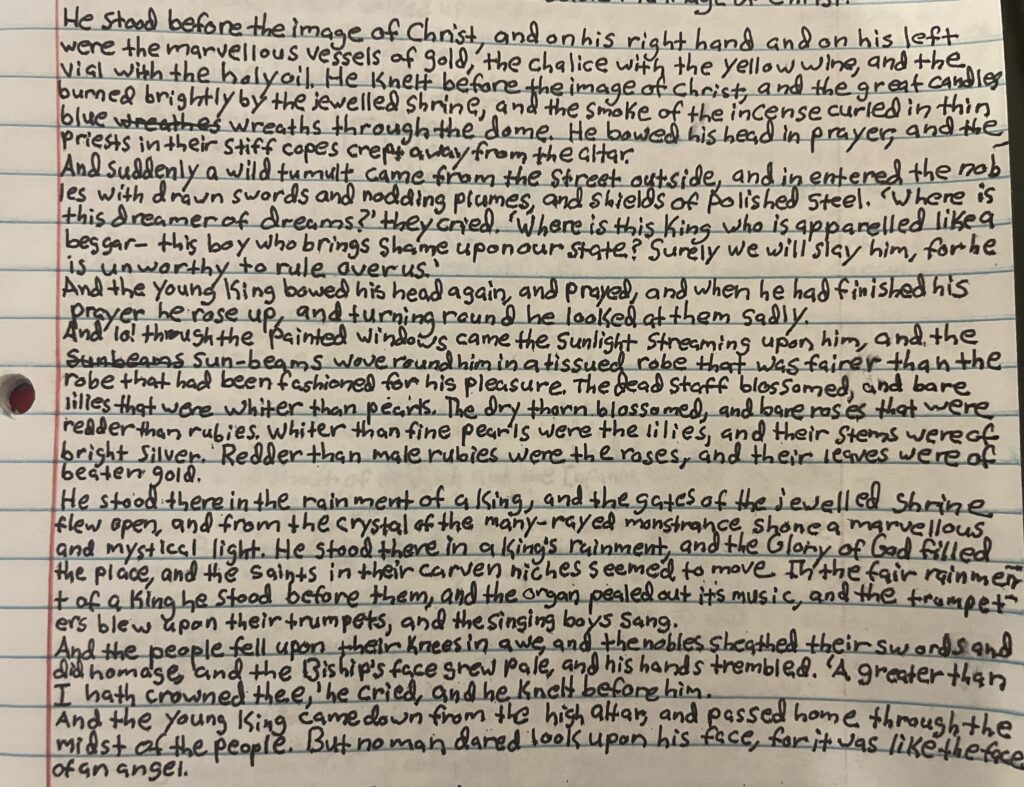 image of Christ.
He stood before the image of Christ, and on his right hand and on his left
were the marvellous vessels of gold, the chalice with the yellow wine, and the
vial with the holy oil. He knelt before the image of Christ, and the great candles
burned brightly by the jewelled shrine, and the smoke of the incense curled in thin
blue wreathes wreaths through the dome. He bowed his head in prayer, and the
priests in their stiff copes crept away from the altar.
And suddenly a wild tumult came from the street outside, and in entered the nob
les with drawn swords and nodding plumes, and shields of polished steel. 'Where is
this dreamer of dreams?' they cried. 'Where is this King who is apparelled like a
beggar- this boy who brings shame upon our state? Surely we will slay him, for he
is unworthy to rule over us.'
And the young King bowed his head again, and prayed, and when he had finished his
prayer he rose up, and turning round he looked at them sadly.
And lo! through the painted windows came the sunlight streaming upon him, and the
Sunbeams sun-beams wove round him in a tissued robe that was fairer than the
robe that had been fashioned for his pleasure. The dead staff blossomed, and bare
lilies that were whiter than pearls. The dry thorn blossomed, and bare roses that were
redder than rubies. Whiter than fine pearls were the lilies, and their stems were of
bright silver. Redder than male rubies were the roses, and their leaves were of
beaten gold.
He stood there in the rainment of a King, and the gates of the jewelled shrine
flew open, and from the crystal of the many-rayed monstrance shone a marvellous
and mystical light. He stood there in a king's rainment, and the Glory of God filled
the place, and the saints in their carven niches seemed to move. In the fair rainmen
t of a King he stood before them, and the organ pealed out its music, and the trumpet-
ers blew upon their trumpets, and the singing boys sang.
And the people fell upon their knees in awe, and the nobles sheathed their swords and
did homage, and the Biship's face grew pale, and his hands trembled. 'A greater than
I hath crowned thee,' he cried, and he knelt before him.
And the young King came down from the high altar, and passed home through the
midst of the people. But no man dared look upon his face, for it was like the face
of an angel.